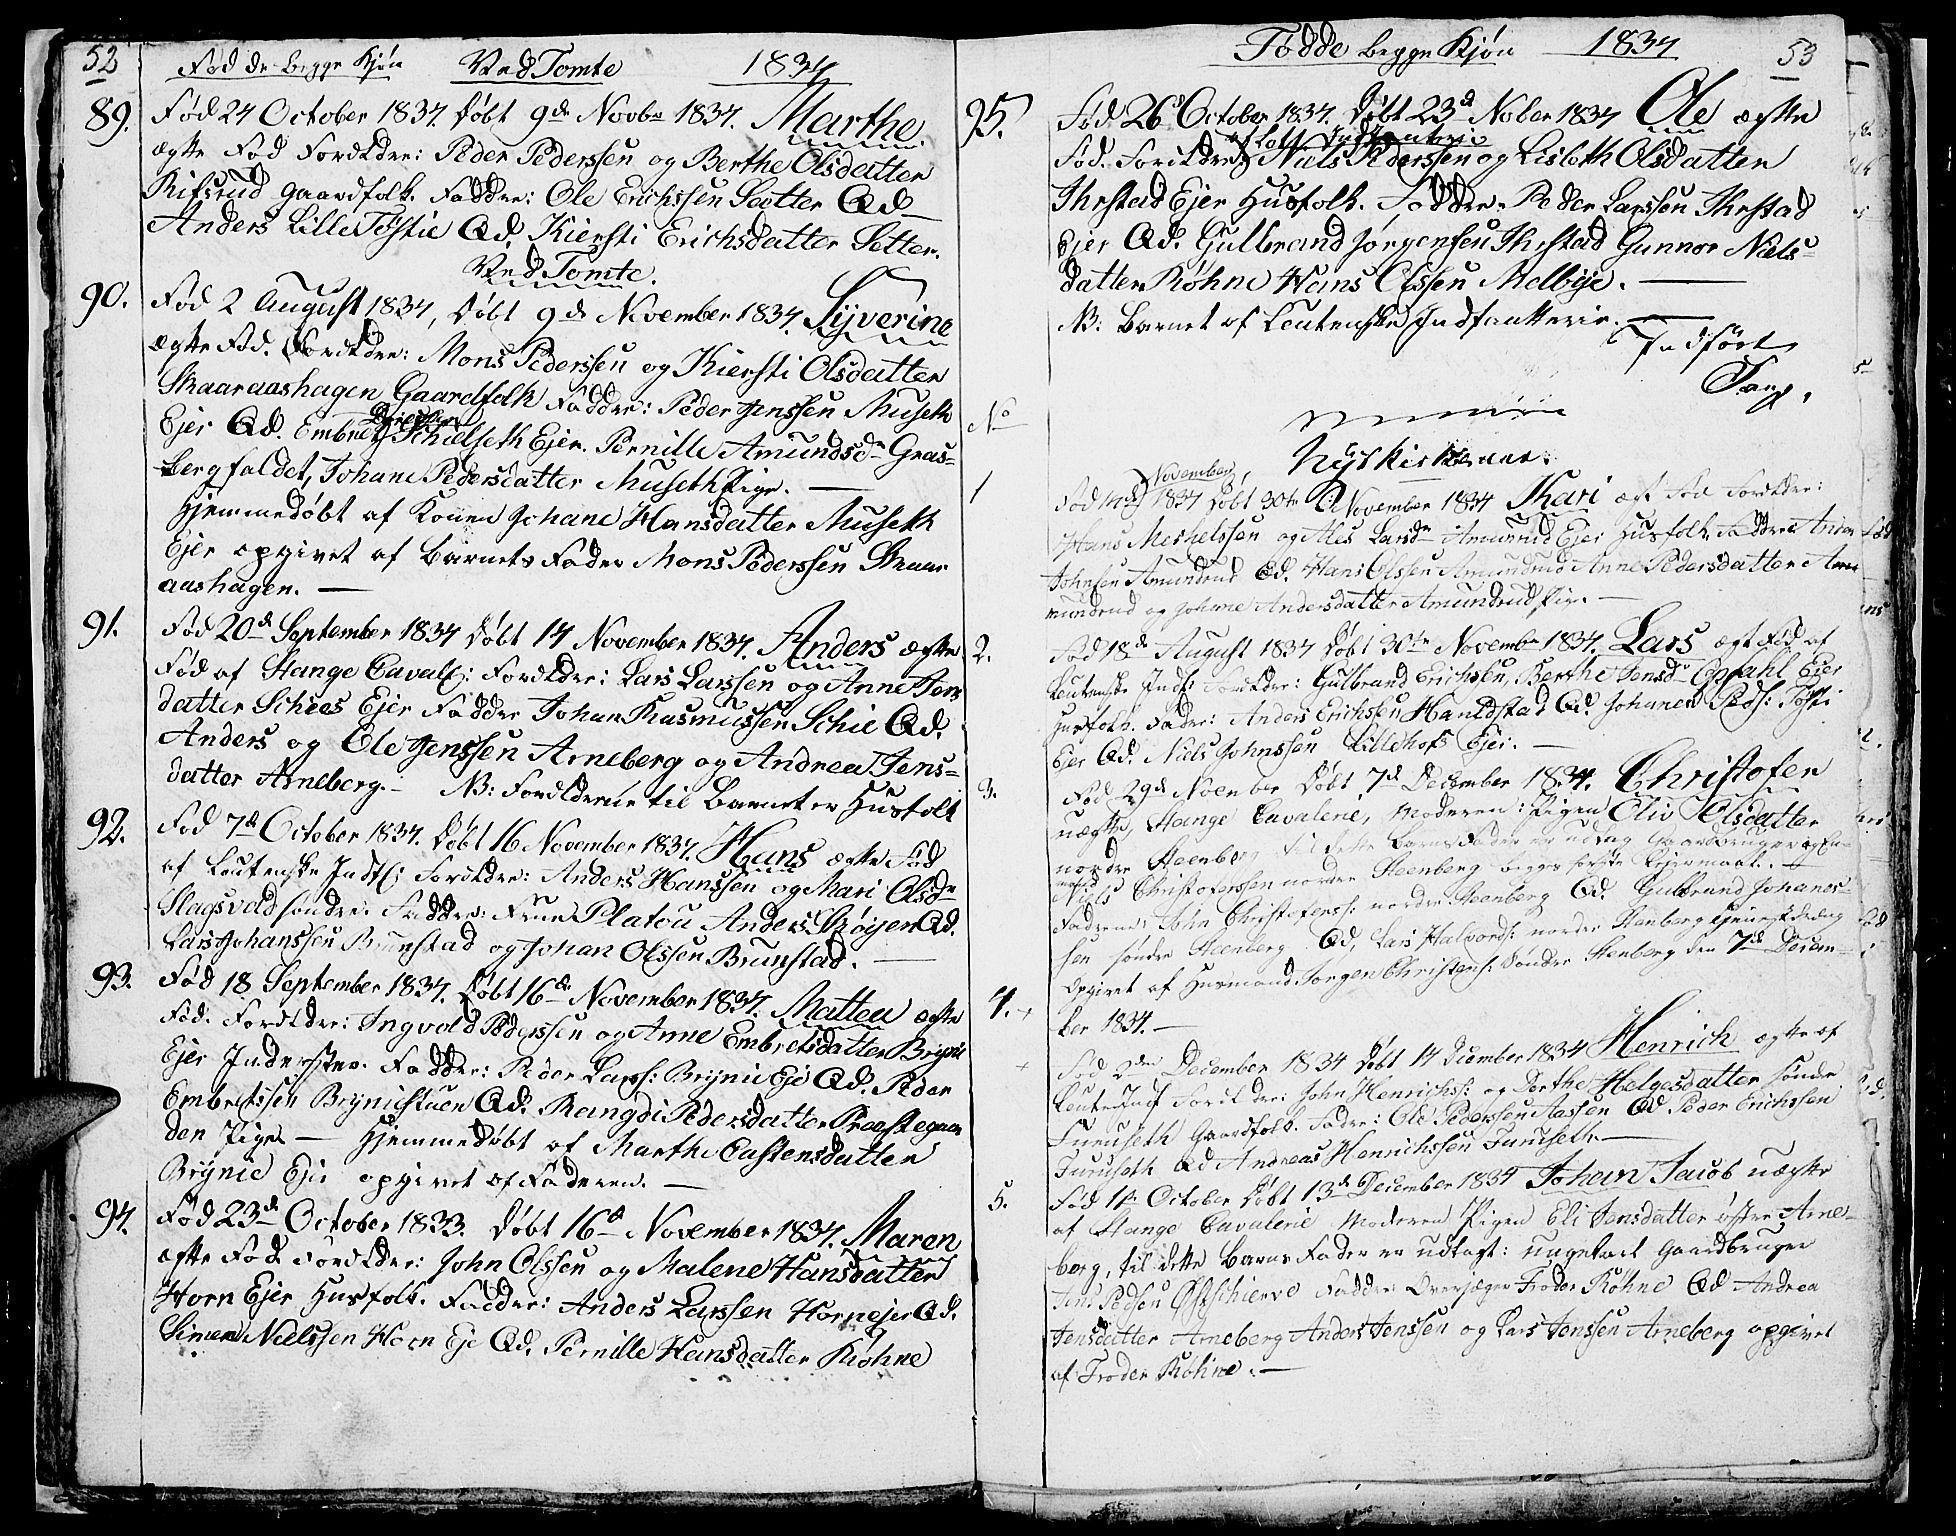 52 Fødde begge Kjøn Ved Tomte 1834
89. Fød 24 October 1834. Døbt 9de Novbr 1834. Marthe
ægte Fød Forældre: Peder Pederssen og Berthe Olsdatter
Rifsrud Gaardfolk. Faddre: Ole Erichssen Sætter Qd
Anders Lille Tøstie Qd. Kiersti Erichsdatter Setter.
Ved Tomte.
90. Fød 2 August 1834, Døbt 9de November 1834. Syverine
ægte Fød. Forældre: Mons Pederssen og Kiersti Olsdatter
Skaaraashagen Gaardfolk Faddre: Peder Jenssen Museth
Ejer Qd. Embret Schielseth Ejer. Pernille Amundsdr Gras-
bergfaldet, Johane Pedersdatter Museth Pige. —
Hjemmedøbt af Konen Johane Hansdatter Museth
Ejer opgivet af Barnets Fader Mons Pederssen Skaar
aashagen. —
91. Fød 20de September 1834 Døbt 14 November 1834. Anders ægte
Fød af Stange Caval: Forældre: Lars Larssen og Anne Jens
datter Schies Ejer Faddre Johan Rasmussen Schie Qd.
Anders og Ole Jenssen Arneberg og Andrea Jens-
datter Arneberg. — NB: Forældrene til Barnet er Husfolk
92. Fød 7de October 1834. Døbt 16 November 1834. Hans ægte Fød
af Leutenske Indf: Forældre: Anders Hanssen og Mari Olsdr
Slagsvold søndre. Faddre: Frue Platou Anders Røyser Qd.
Lars Johanssen Brunstad og Johan Olssen Brunstad. —
93. Fød 18 September 1834. Døbt 16de November 1834. Mattea ægte
Fød. Forældre: Ingvold Pederssen og Anne Embretsdatter Brynie
Ejer Inderster. Faddre: Peder Larss: Brynie Eje Qd. Peder
Embretssen Bryniestuen Qd. Rangdi Pedersdatter Præstegaar
den Pige — Hjemmedøbt af Marthe Castensdatter
Brynie Eje opgivet af Faderen. —
94. Fød 23de October 1833. Døbt 16de November 1834. Maren
ægte Fød Forældre: John Olssen og Malene Hansdatter
Horn Ejer Husfolk. Faddre: Anders Larssen Hornejer Qd.
Simen Nielssen Horn Eje Qd. Pernille Hansdatter Kiøhne
Fødde begge Kjøn 1834 53
95. Fød 26de October 1834. Døbt 23de Nober 1834 Ole ægte
Fød. Forældre Niels Pederssen og Lisbeth Olsdatter
Ihrstad Ejer Husfolk. Faddre: Peder Larssen Ihrstad
Ejer Qd. Gulbrand Jørgenssen Ihrstad Gunnor Niels-
datter Kiøhne Hans Olssen Melbye. —
NB: Barnet af Leutenske Indfantterie. —
Indført
No
Nyekirken
November
1 Fød 14de 1834 Døbt 30te November 1834 Kari ægt Fød Forældre:
Hans Mechelssen og Ales Larsdr Amunrud Ejer Husfolk Faddre Anders
Johnsen Amundrud Qd. Hans Olssen Amundrud Anne Pedersdatter Am
mundrud og Johane Andersdatter Amundrud Pige. —
2. Fød 18de August 1834 Døbt 30te Novembr 1834. Lars ægt Fød af
Leutenske Indf: Forældre: Gulbrand Erichsen, Berthe Jensdr Opsahl Ejer
Husfolk. Fadre: Anders Erichssen Hanestad Qd. Johannes Peds: Tøsti
Ejer Qd. Niels Johnssen Lillehofs Ejer. —
3. Fød 29de Noember Døbt 7de December 1834. Christofer
uægte, Stange Cavalerie, Moderen: Pigen Oliv Olsdatter
nordre Steenberg til dette Barns Fader er udlag Gaardbruger
Niels Christoferssen nordre Steenberg begges første Leiermaal. —
Fadrene: John Christoferss: nordre Steenberg Qd. Gulbrand Johanes-
sen søndre Steenberg Qd, Lars Halvords: nordre Stenberg
Opgivet af Husmand Jørgen Christens: Søndre Stenberg den 7de Decem-
ber 1834. —
4. Fød 2den December 1834 Døbt 14 December 1834 Henrich ægte af
Leute Indf Forældre: John Henrichs: og Dorthe Helgesdatter søndre
Furuseth Gaardfolk. Fadre: Ole Pederssen Aassen Qd Peder Erichssen
Furuseth Qd Andreas Henrichssen Furuseth. —
5. Fød 11te October Døbt 13de December 1834 Johan Jacob uægte
af Stange Cavalerie Moderen Pigen Eli Jensdatter østre Arne-
berg, til dette Barns Fader er udlagt: ungekarl Gaardbruger
Jens Pedsen Østschierve Faddre: Overjæger Troder Kiøhne Qd Andrea
Jensdatter Arneberg Anders Jenssen og Lars Jenssen Arneberg opgivet
af Troder Kiøhne. —